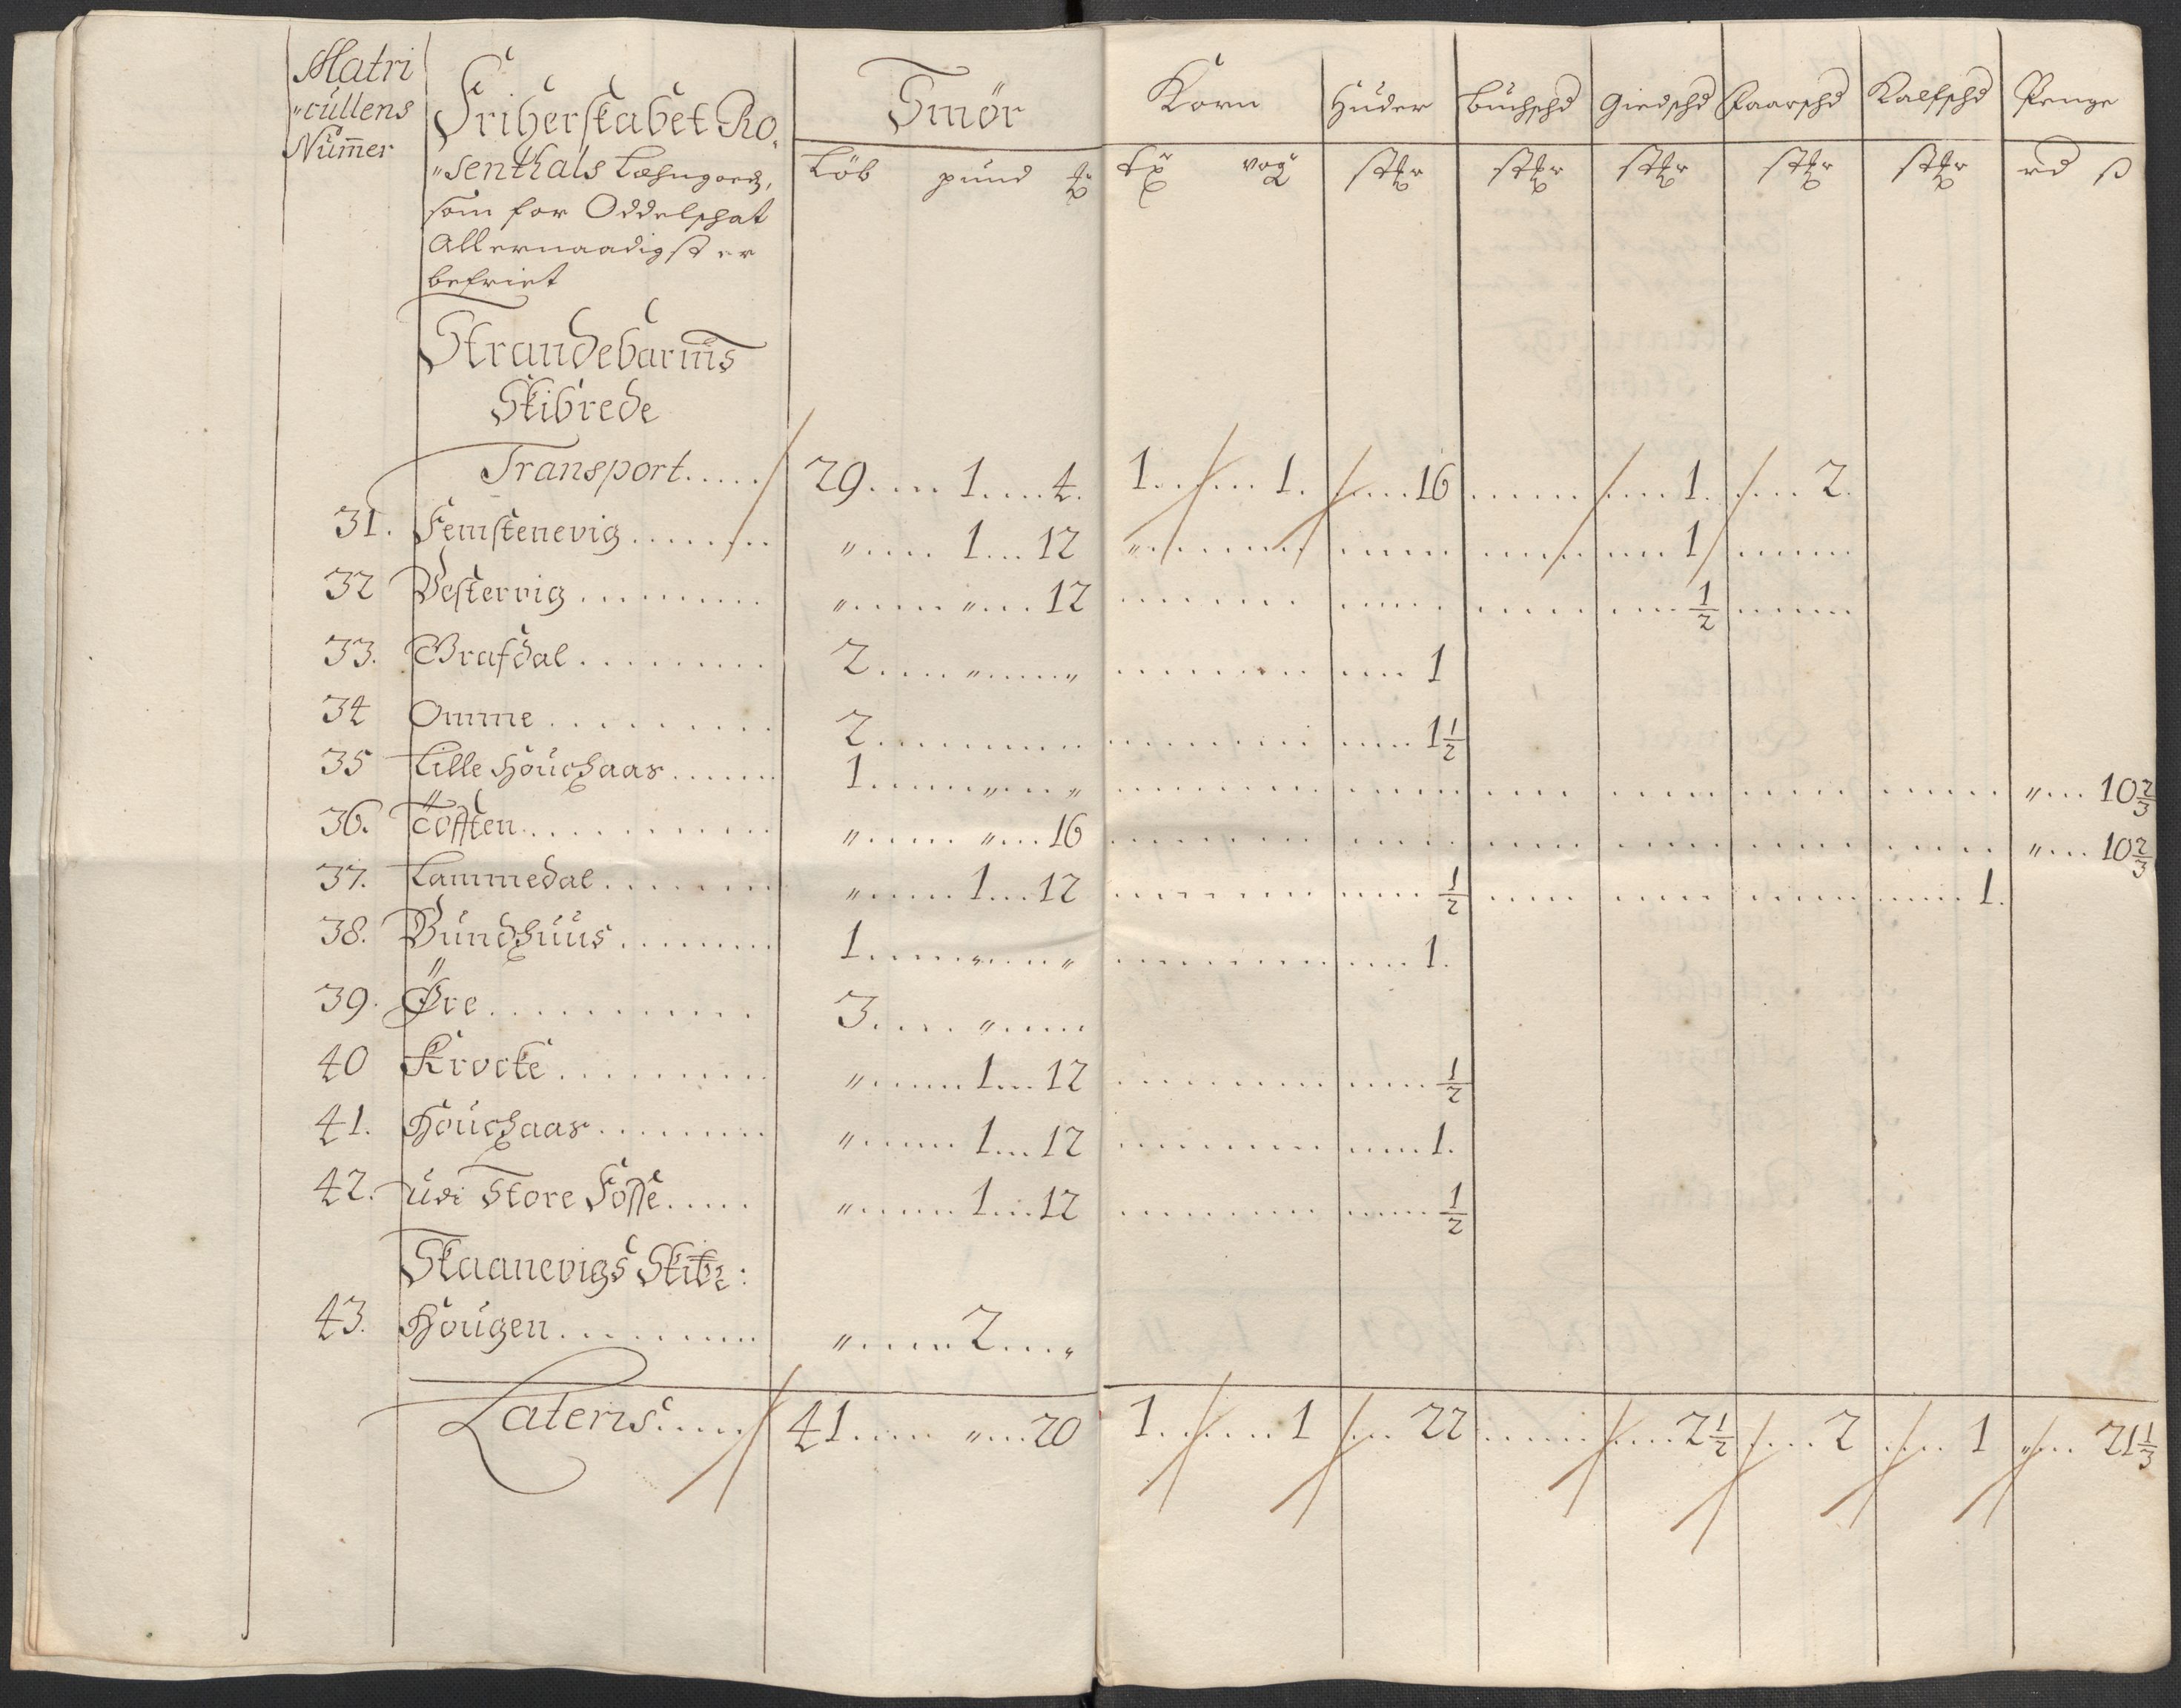 Matri
"cullens
Nu͞mer
Friherskabet Ro,
"senthals Læhngoedz,
som for Oddelschat
Allernaadigst er
befriet
Smör Korn Huder Buchschd Giedschd Faarschd Kalfschd Penge
Löb pund rd ß
Strandebarms
Skibrede
Transport..... 29.... 1.... 4. 1...... 1. ....16 ...... .... 1. .... 2.
31. Femstenevig....... "..... 1... 12 "....... 1
32 Vestervig......... "..... "... 12 ....... 1/2
33. Grafdal......... 2.... "....." ....... 1
34 Omme.......... 2.......... ....... 1 1/2
35 Lille Houchaas....... 1......"...." ....... "... 10 2/3
36. Töfften........... "..... "... 16 ....... "... 10 2/3
37. Lammedal........ "..... 1... 12 ....... 1/2 ....... 1.
38. Bundhuus........ 1......"...." ....... 1.
39. Øre........... 3.... ".....
40 Krocke......... "..... 1... 12 ....... 1/2
41. Houchaas........ "..... 1... 12 ....... 1.
42. udi Store Fosse..... "..... 1... 12 ....... 1/2
Skaanevigs Skibr:
43. Hougen......... "..... 2...."
Lateris..... 41..... "... 20 1...... 1 ... 22 ...... .... 2 1/2 .... 2 .... 1 "... 21 1/3